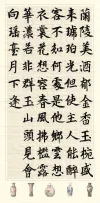 蘭陵美酒郁金香玉椀盛
來琥珀光但使主人能醉
客不知何處是他鄉雲想
衣裳花想容春風拂檻露
華濃若非群玉山頭見會
向瑤臺月下逢